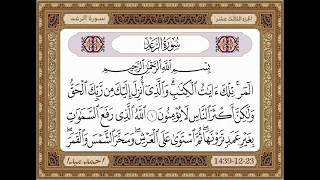 الجزء الثالث عشر
سورة الرعد
سُورَةُ الرَّعْدِ
بِسْمِ اللَّهِ الرَّحْمَٰنِ الرَّحِيمِ
الٓمٓرۚ تِلْكَ ءَايَٰتُ ٱلْكِتَٰبِۗ وَٱلَّذِىٓ أُنزِلَ إِلَيْكَ مِن رَّبِّكَ ٱلْحَقُّ
وَلَٰكِنَّ أَكْثَرَ ٱلنَّاسِ لَا يُؤْمِنُونَ ١ ٱللَّهُ ٱلَّذِى رَفَعَ ٱلسَّمَٰوَٰتِ
بِغَيْرِ عَمَدٍ تَرَوْنَهَاۖ ثُمَّ ٱسْتَوَىٰ عَلَى ٱلْعَرْشِۖ وَسَخَّرَ ٱلشَّمْسَ وَٱلْقَمَرَۖ
1439-12-23